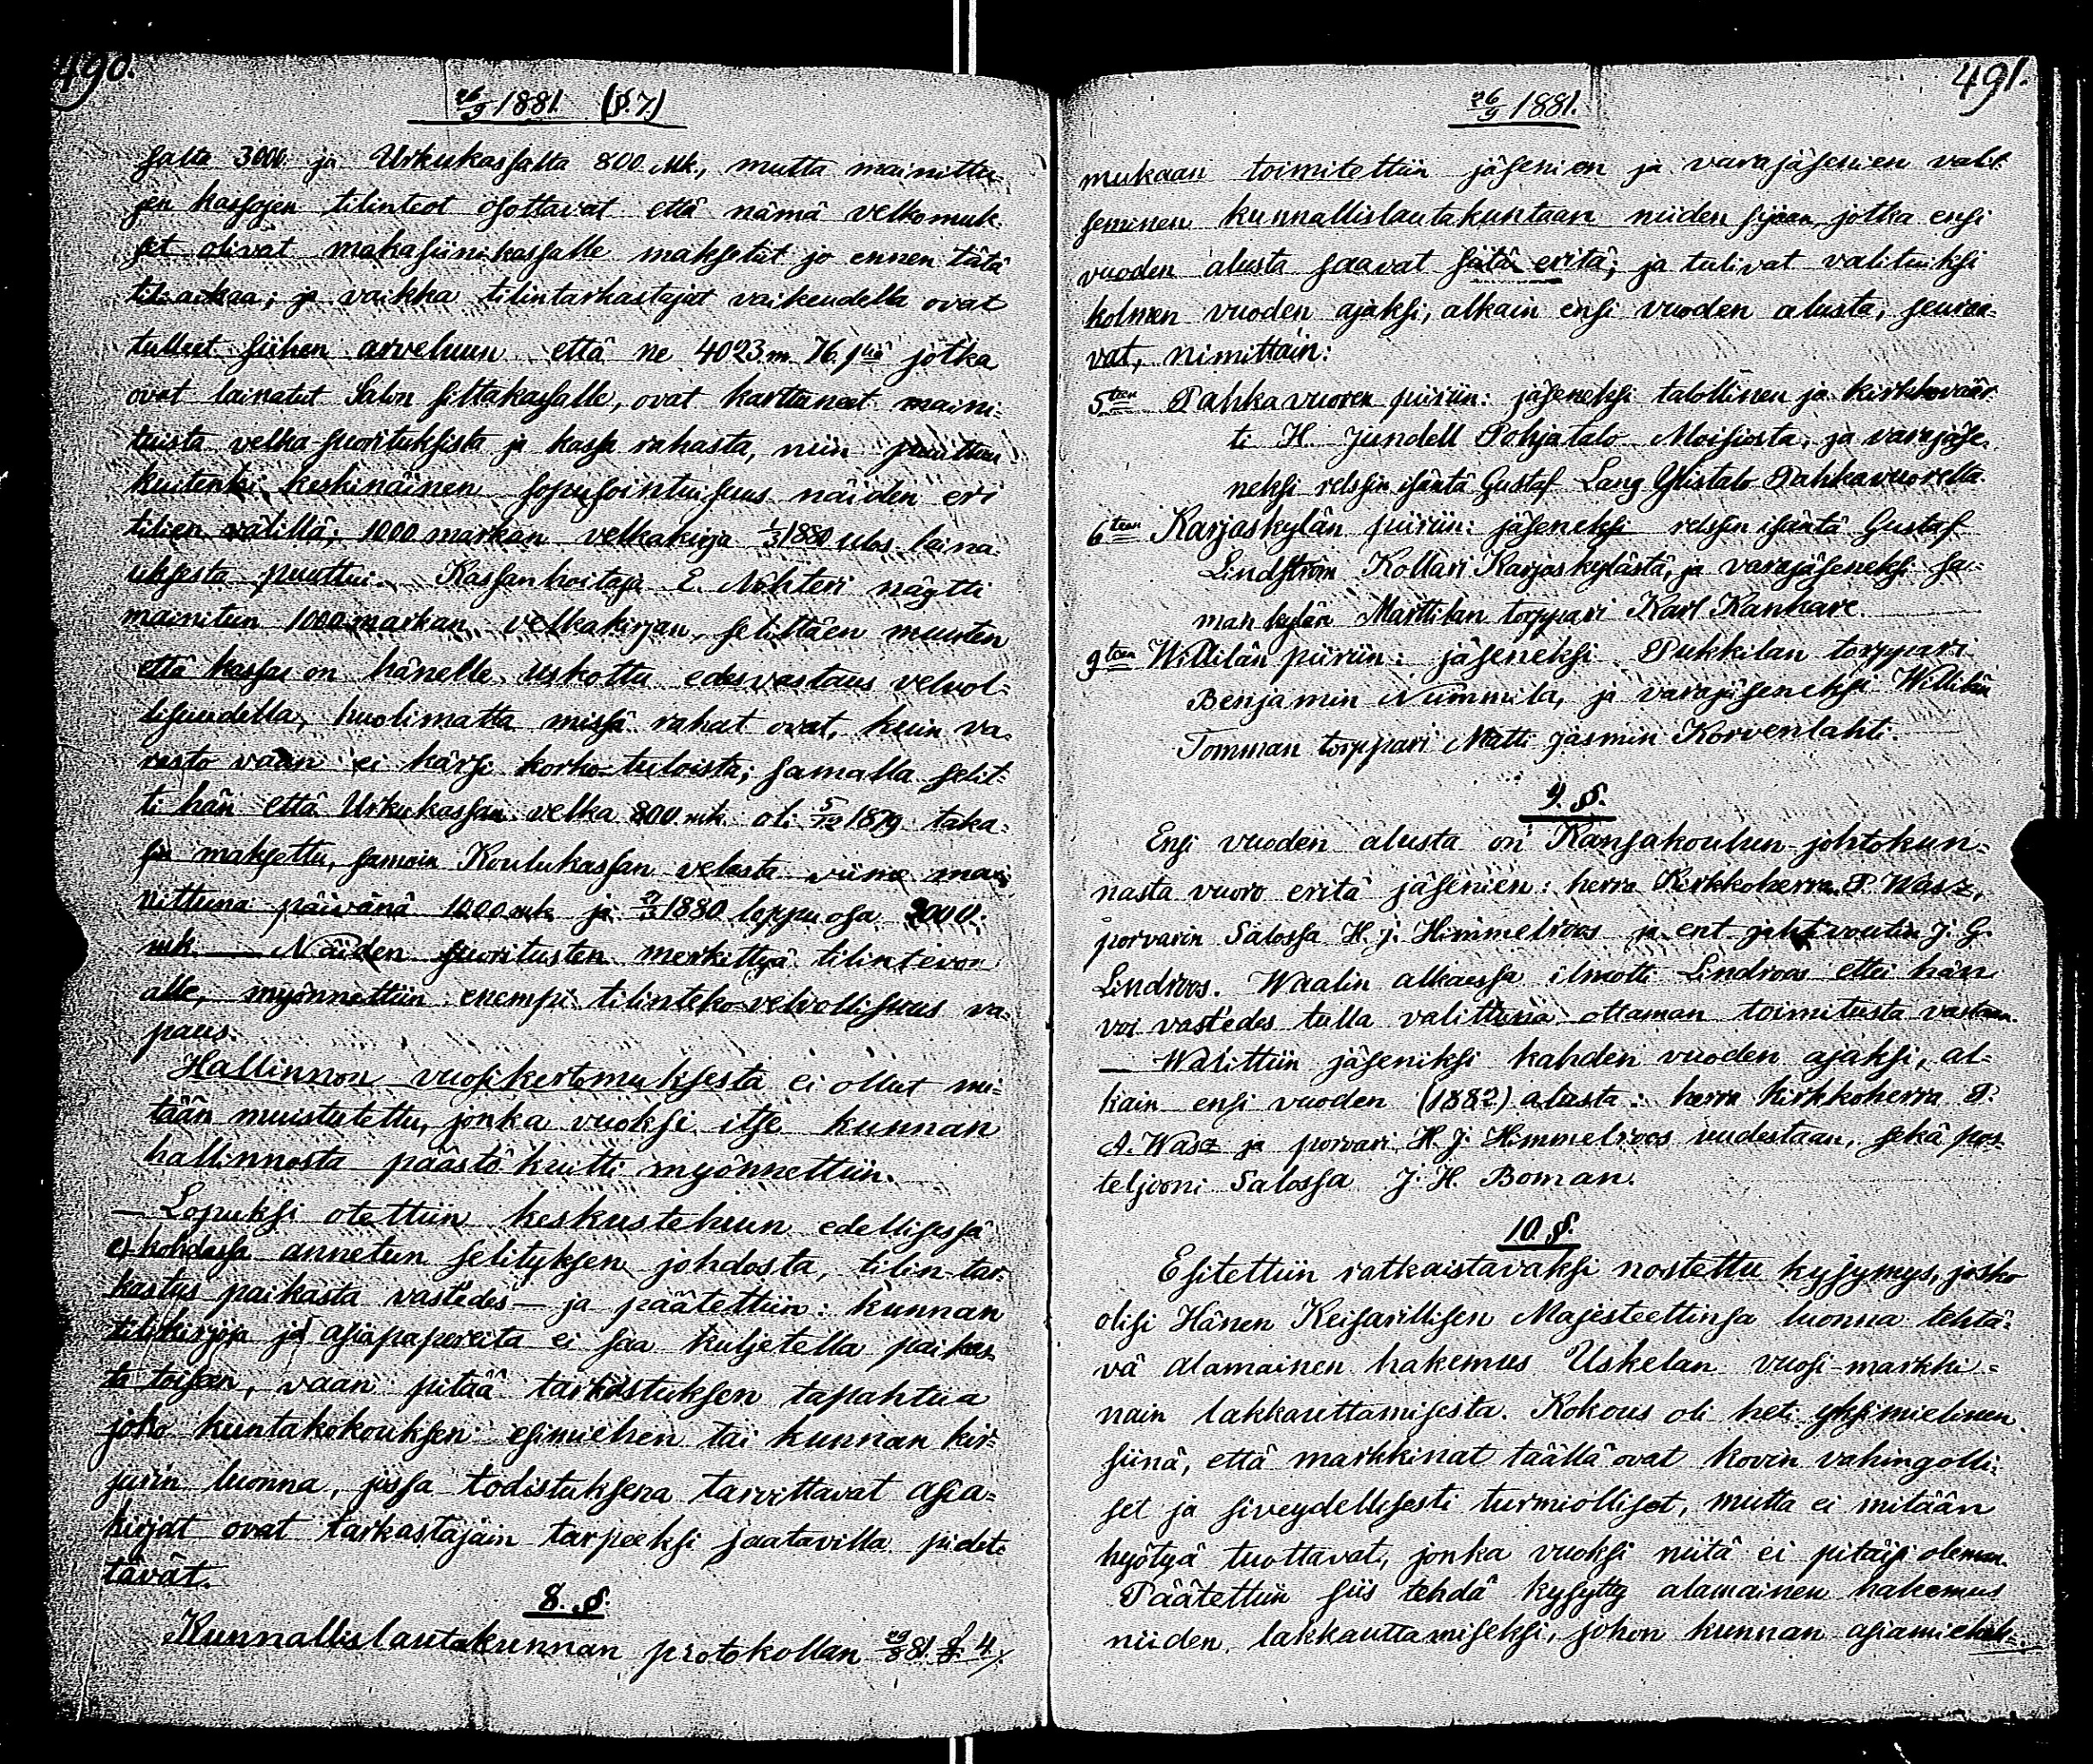 490.
26/9 1881. (§.7)
salta 3000. ja Urkukassalta 800 mk., mutta mainittu-
jen kassojen tilinteot osottavat että nämä velkomuk-
set olivat makasiinikassalle maksetut jo ennen tätä
tiliaikaa; ja vaikka tilintarkastajat vaikeudella ovat
tulleet siihen arveluun että ne 4023 m. 76 p:iä jotka
ovat lainatut Salon siltakassalle, ovat karttuneet maini-
tuista velka-suorituksista ja kassa rahasta, niin puuttuu
kuitenki keskinäinen sopusointuisuus näiden eri
tilien välillä; 1000 markan velkakirja 1/3 1880 ulos laina-
uksesta puuttui. Kassanhoitaja E. Nohteri näytti
mainitun 1000 markan velkakirjan, selittäen muuten
että kassa on hänelle uskottu edesvastaus velvol-
lisuudella, huolimatta missä rahat ovat, kuin va-
rasto vaan ei kärsi korko-tuloista; samalla selit-
ti hän että Urkukassan velka 800 mk. oli 5/12 1879 taka-
sin maksettu, samoin Koulukassan velasta viime mai-
nittuna päivänä 1000 mk. ja 1880 loppu osa 2000.
mk. — Näiden suoritusten merkittyä tilintevon
alle, myönnettiin enempi tilinteko-velvollisuus va-
paus.
Hallinnon vuosikertomuksesta ei ollut mi-
tään muistutettu, jonka vuoksi itse kunnan
hallinnosta päästö kuitti myönnettiin.
— Lopuksi otettiin keskusteluun edellisessä
e) kohdassa annetun selityksen johdosta, tilin tar-
kastus paikasta vast'edes — ja päätettiin: kunnan
tilikirjoja ja asiapapereita ei saa kuljetella paikas-
ta toiseen, vaan pitää tarkastuksen tapahtua
joko kuntakokouksen esimiehen tai kunnan kir-
jurin luonna, jossa todistuksena tarvittavat asia-
kirjat ovat tarkastajain tarpeeksi saatavilla pidet-
tävät.
8. §.
Kunnallislautakunnan protokollan 29/8 81. §. 4.
491.
26/9 1881.
mukaan toimitettiin jäsenien ja varajäsenien valit-
seminen kunnallislautakuntaan niiden sijaan, jotka ensi
vuoden alusta saavat siitä eritä; ja tulivat valituiksi
kolmen vuoden ajaksi, alkain ensi vuoden alusta, seuraa-
vat, nimittäin:
5:teen Pahkavuoren piiriin: jäseneksi talollinen ja kirkkoväär-
ti H. Jundell Pohjatalo Moisiosta, ja varajäse-
neksi relssin isäntä Gustaf Lang Ylistalo Pahkavuorelta.
6:teen Karjaskylän piiriin: jäseneksi relssin isäntä Gustaf
Lindström Kollari Karjaskylästä, ja varajäseneksi sa-
man kylän Marttilan torppari Karl Kankare.
9:teen Willilän piiriin: jäseneksi Pukkilan torppari
Benjamin Nummila, ja varajäseneksi Willilän
Tomman torppari Matti Jasmin Korvenlahti.
9. §.
Ensi vuoden alusta on Kansakoulun johtokun-
nasta vuoro eritä jäsenien: herra Kirkkoherra P. Wasz,
porvarin Salossa H. J. Himmelroos ja ent. jahtvoutin J. G.
Lindroos. Waalin alkaessa ilmotti Lindroos ettei hän
voi vast'edes tulla valittuna ottaman toimitusta vastaan.
— Walittiin jäseniksi kahden vuoden ajaksi, al-
kain ensi vuoden (1882) alusta: herra Kirkkoherra P.
A. Wasz ja porvari H. J. Himmelroos uudestaan, sekä pos-
teljooni Salossa J. H. Boman.
10. §.
Esitettiin ratkaistavaksi nostettu kysymys, josko
olisi Hänen Keisarillisen Majesteettinsa luonna tehtä-
vä alamainen hakemus Uskelan vuosi-markki-
nain lakkauttamisesta. Kokous oli heti yksimielinen
siinä, että markkinat täällä ovat kovin vahingolli-
set ja siveydellisesti turmiolliset, mutta ei mitään
hyötyä tuottavat, jonka vuoksi niitä ei pitäisi oleman.
Päätettiin siis tehdä kysytty alamainen hakemus
niiden lakkauttamiseksi, johon kunnan asiamieheks-